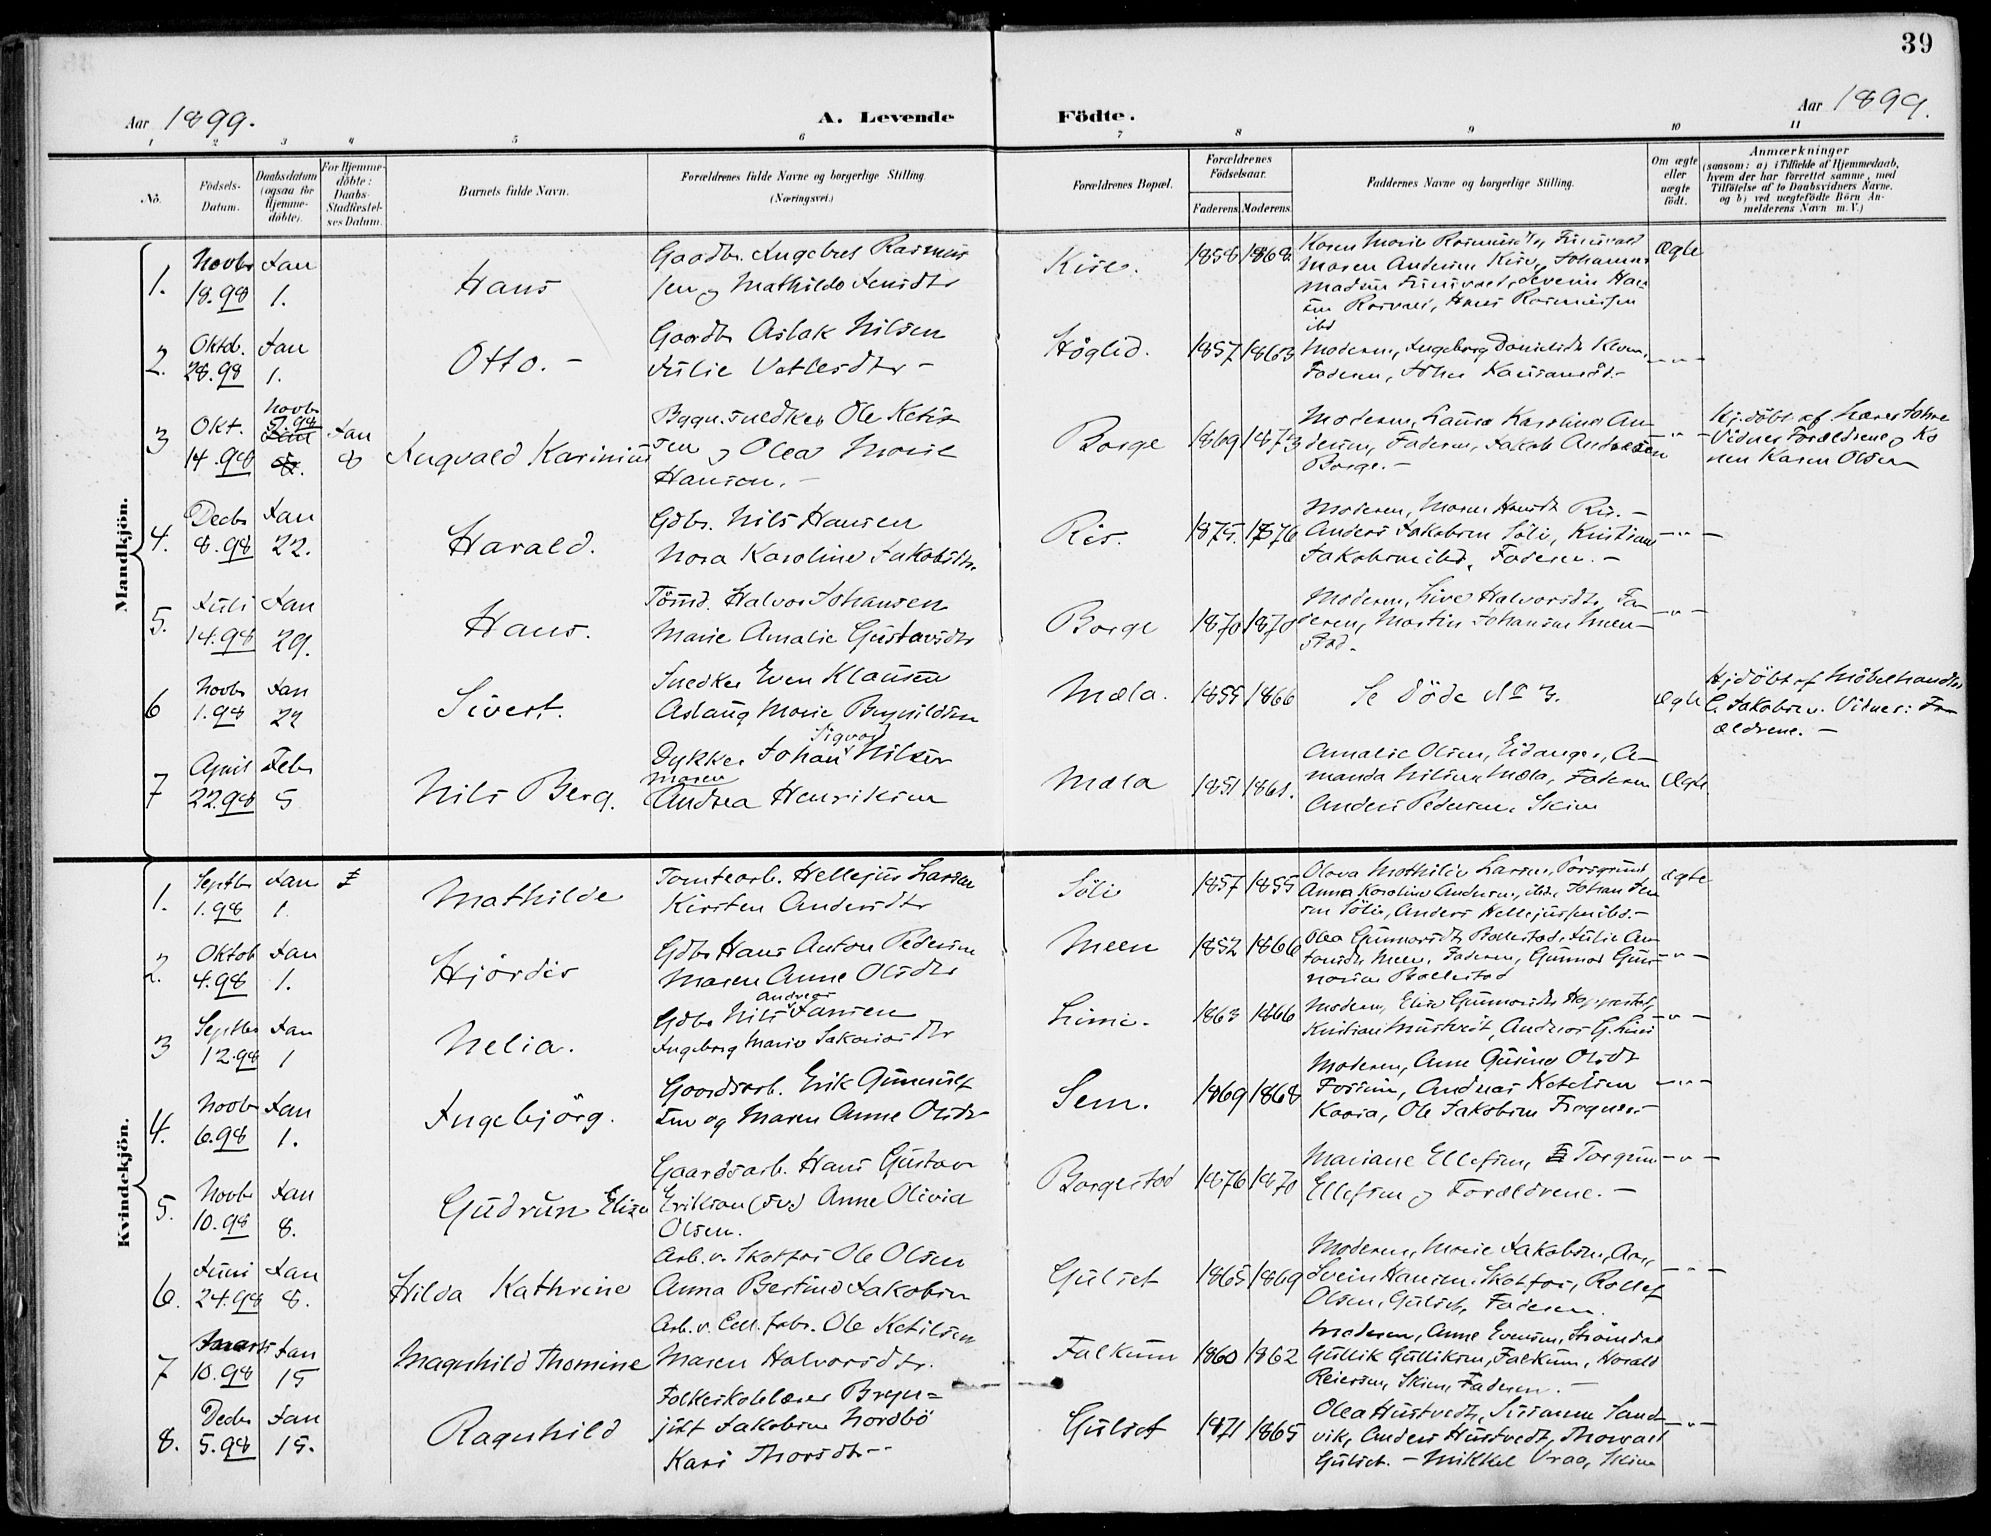 39
Aar 1899.
A. Levende Födte.
Aar 1899.
1 2 3 4 5 6 7 8 9 10 11
No.
Födsels-
Datum.
Daabsdatum
(ogsaa for
Hjemme-
döbte).
For Hjemme-
döbte:
Daabs
Stadfæstel-
ses Datum.
Barnets fulde Navn.
Forældrenes fulde Navne og borgerlige Stilling.
(Næringsvei.)
Forældrenes Bopæl.
Forældrenes
Födselsaar.
Faderens. Moderens.
Faddernes Navne og borgerlige Stilling.
Om ægte
eller
uægte
födt.
Anmærkninger
(saasom: a) i Tilfælde af Hjemmedaab,
hvem der har forrettet samme, med
Tilföielse af to Daabsvidners Navne.
og b) ved uægtefödte Börn An-
melderens Navn m. V.)
Mandkjön.
1. Novbr 18.98 Jan 1. Hans
Gaardbr. Ingebret Rasmus
sen og Mathilde
Kise. 1858 1868.
Maren Andersen Kise, Johannes
Hans Rasmussen
ibd
Ægte
2. Oktob. 28.98 Jan 1. Otto. –
Gaardbr Aslak Nilsen
Julie Vetlesdtr –
Höglid. 1857 1863
Moderen, Ingeborg Danielsdtr
Faderen,
– " –
3 Okt. 14.98 Novbr 5.98 Jan 8 Ingvald Karinius
Bygn.snedker Ole Ketils
sen og Olea Marie
Hansen. –
Borge 1869 1873
Moderen, Laura Karoline An-
dersen, Faderen, Jakob Andersen
Borge. –
– " –
Hj.döbt af
– Vidner Forældrene og Ko
nen Karen Olsen
4. Decbr 8.98 Jan 22. Harald.
Gdbr. Nils Hansen
Nora Karoline Jakobsdtr.
Ris. 1875. 1876
Moderen, Maren Ris. –
Anders Jakobsen Söli, Kristian
Jakobsen ibd., Faderen. –
– " –
5. Juli 14.98 Jan 29. Hans.
Tömd. Halvor Johansen
Marie Amalie Gustavsdtr
Borge 1870 1870
Moderen, Live Halvorsdtr, Fa-
deren, Martin Johansen Meen-
stad.
– " –
6 Novbr 1.98 Jan 22 Sivert.
Snedker Even Klausen
Aslaug Marie Brynildsen
Mæla. 1855 1866
Se döde No 3.
Ægte
Hjdöbt af Möbelhandler
C. Jakobsen. Vidner: For
ældrene. –
7 April 22.98 Febr 5 Nils Berg.
Sigvard
Dykker Johan Nilsen
Maren
Andrea Henriksen
Mæla 1851 1861.
Amalie Olsen, Eidanger, A-
manda Nilsen Mæla, Faderen
Anders Pedersen, Skien
Ægte
Kvindekjön.
1. Septbr 1.98 Jan 1. Mathilde
Tomtearb. Hellejus Larsen
Kirsten Andersdtr
Söli 1857 1855
Olava Mathilde Larsen, Porsgrund
Anna Karoline Andersen, ibd., Johan Jen
sen Söli, Anders Hellejussen ibd. –
ægte
2. Oktob 4.98 Jan 1. Hjördis
Gdbr Hans Anton Pedersen
Maren Anne Olsdtr
Meen 1852 1866
Olea Gunnarsdtr Bollestad, Julie An-
tonsdtr Meen, Faderen, Gunnar Gun-
narsen Bollestad
– " –
3 Septbr 12.98 Jan 1 Nelia.
Andreas
Gdbr Nils Jansen
Ingeborg Marie Sakariasdtr
Limi. 1863 1866
Moderen, Elise Gunnarsdtr
Kristian Hustvedt, Andreas G. Limi
– " –
4. Novbr 6.98 Jan 1. Ingebjörg.
Gaardsarb. Erik Gunnulf
sen og Maren Anne Olsdtr
Sem. 1869 1868
Moderen, Anne Gurine Olsdt
Fossum, Andreas Ketilsen
Kaasa, Ole Jakobsen
– " –
5. Novbr 10.98 Jan 8. Gudrun Elise
Gaardsarb. Hans Gustav
Eriksson (sv.) Anne Olivia
Olsen.
Borgestad 1876 1870
Mariane Ellefsen, Torgrim
Ellefsen og Forældrene. –
– " –
6. Juni 24.98 Jan 8. Hilda Kathrine
Arb. v. Skotfos Ole Olsen
Anna Bertine Jakobsen
Gulset 1865 1869
Moderen, Marie Jakobsen,
Svein Hansen Skotfos, Rollef
Olsen, Gulset, Faderen.
– " –
7 10.98 Jan 15 Magnhild Thomine
Arb. v. Cell. fabr. Ole Ketilsen
Maren Halvorsdtr.
Falkum 1860 1862
Moderen, Anne Evensen, Strömdal
Gullik Gulliksen, Falkum, Harald
Reiersen, Skien, Faderen. –
8. Decbr 5.98 Jan 15. Ragnhild
Folkeskolelærer Bryn=
julf Jakobsen Nordbö
Kari Thorsdtr –
Gulset 1871 1865
Olea Hustvedt, Susanne Sand
vik, Anders Hustvedt, Thorvald
Gulset. – Mikkel Vraa, Skien
– " –